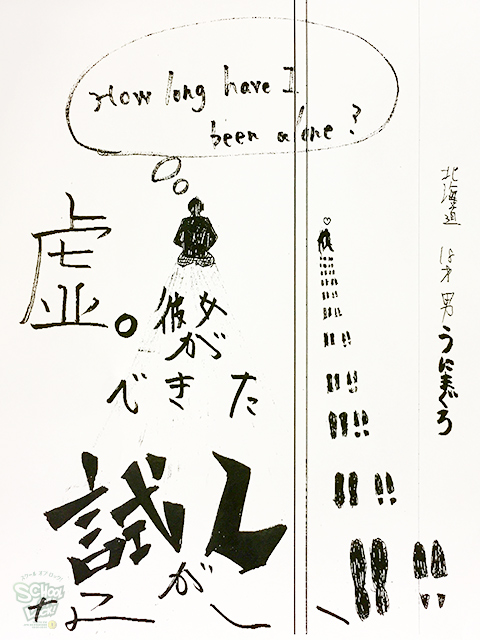 How long have I
been alone?
虚。
彼女が
できた
試しが
ない
北海道 18才 男 うにまぐろ